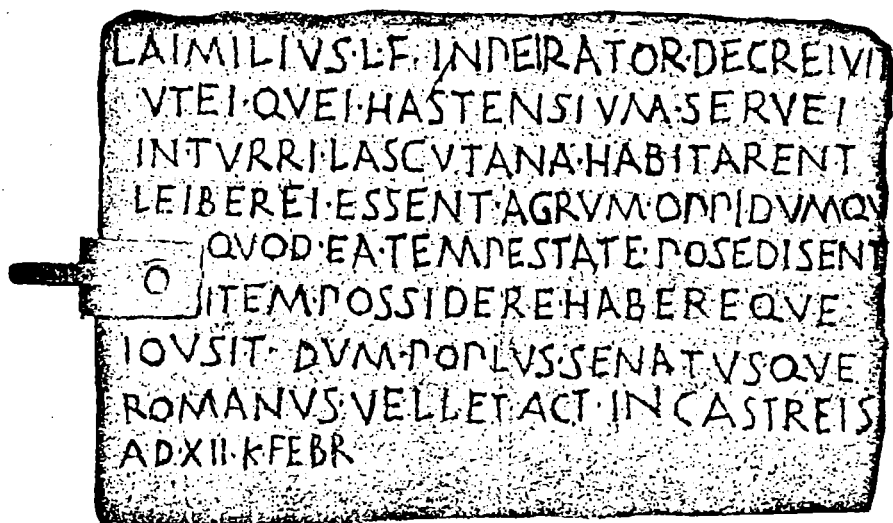 LAIMILIVS·L·F·INPEIRATOR·DECREIVI
VTEI·QVEI·HASTENSIVM·SERVEI
IN·TVRRI·LASCVTANA·HABITARENT
LEIBEREI·ESSENT·AGRVM·OPPIDVMQV
QVOD·EA·TEMPESTATE·POSEDISENT
ITEM·POSSIDERE·HABEREQVE
IOVSIT·DVM·POPLVS·SENATVSQVE
ROMANVS·VELLET·ACT·IN CASTREIS
A·D·XII·K·FEBR